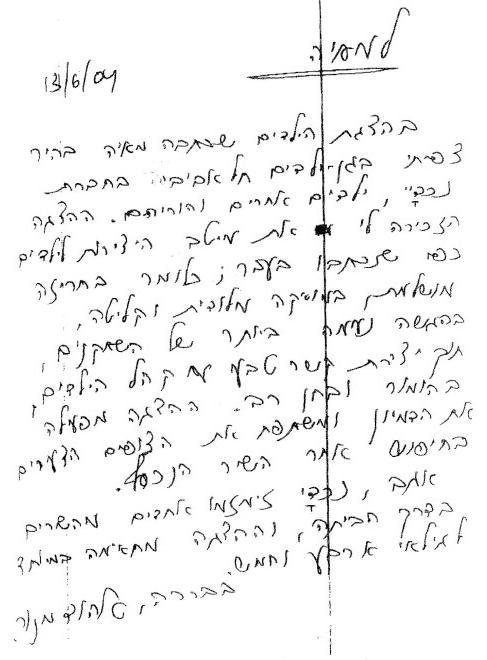 למאיה
13/6/04
בהצגת הילדים שכתבה מאיה בהיר
צפיתי בגן-ילדים תל אביבי בחברת
נכדיי, ילדים אחרים והוריהם. ההצגה
הזכירה לי את מיטב היצירות לילדים
שנכתבו בעבר; כלומר בחריזה
מושלמת, במוסיקה מלודית וקליטה,
בהגשה נעימה ביותר של השחקנים,
תוך יצירת קשר טבעי עם קהל הילדים,
בהומור ובחן רב. ההצגה מפעילה
את הדמיון ומשתפת את הצופים הצעירים
בחיפוש אחר השיר הנכסף.
אגב, נכדי זימזמו אחדים מהשירים
בדרך הביתה, וההצגה מתאימה במיוחד
לגילאי ארבע וחמש.
בברכה, אהוד מנור